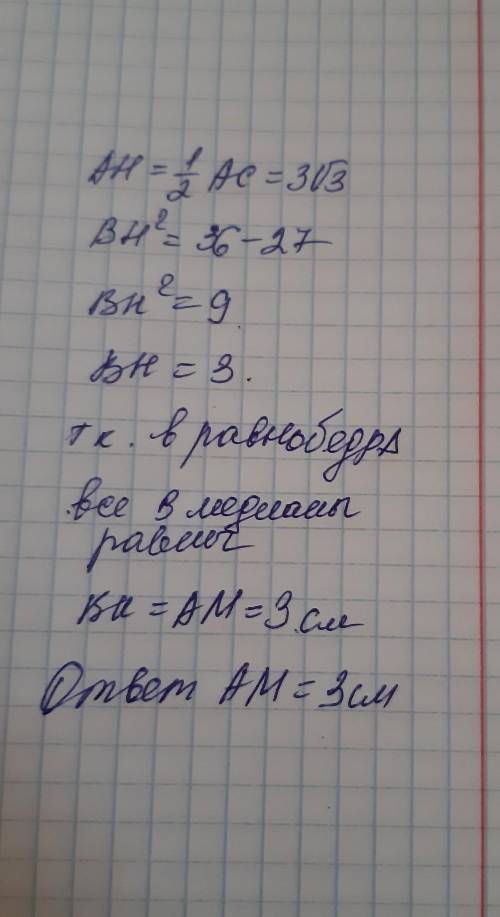 AH = 1/2 AC = 3√3
BH² = 36 - 27
BH² = 9
BH = 3.
т к. в равнобедр Δ
все 3 медианы
равны
BH = AM = 3 см
Ответ AM = 3 см